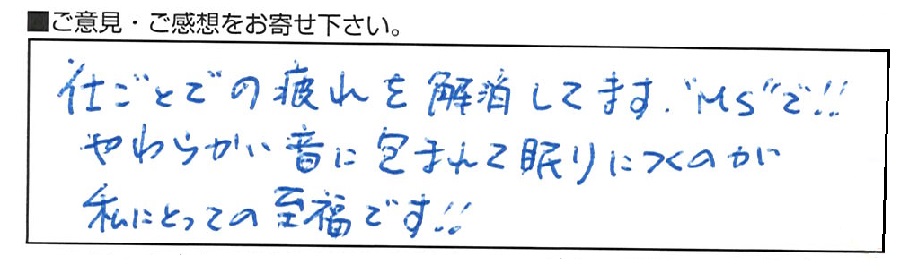 ■ご意見・ご感想をお寄せ下さい。
仕ごとでの疲れを解消してます."MS"で!!
やわらかい音に包まれて眠りにつくのが
私にとっての至福です!!